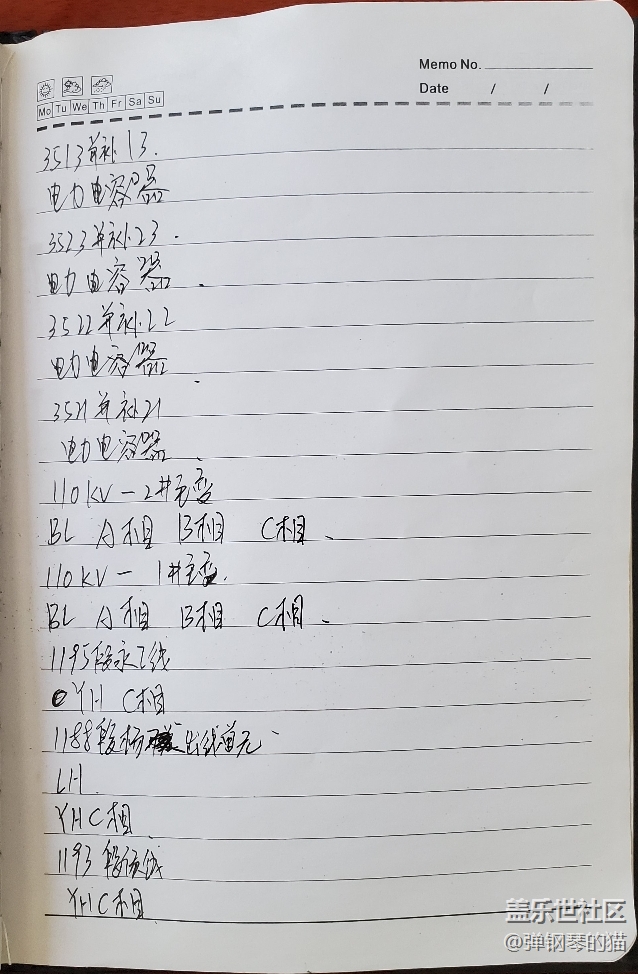 Memo No.
Mo Tu We Th Fr Sa Su
Date / /
3513并补13.
电力电容器
3523并补23.
电力电容器.
3522并补22
电力电容器.
3521并补21
电力电容器.
110KV-2#主变
BL A相 B相 C相.
110KV-1#主变.
BL A相 B相 C相.
1195段永工线
YH C相
1188段杨 出线单元
LH
YHC相
1193段 线
YHC相
盖乐世社区
@弹钢琴的猫